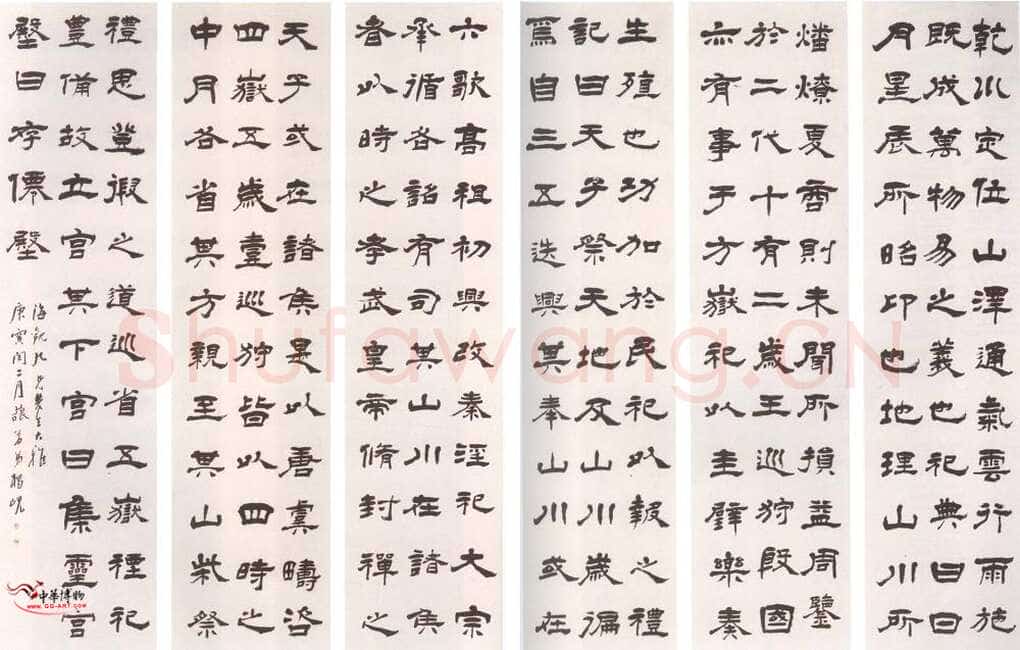 乾川定位山澤通氣雲行雨施
既成萬物易之義也祀典曰曰
月星辰所昭卬也地理山川所
燔燎夏商則未聞所損益周鑒
於二代十有二歲王巡狩殷國
亦有事于方嶽祀以圭璧樂奏
生殖也功加於民祀以報之禮
記曰天子祭天地及山川歲徧
焉自三五迭興其奉山川或在
六歌高祖初興改秦淫祀大宗
承循各詔有司其山川在諸侯
者以時之孝武皇帝脩封禪之
天子或在諸侯是以唐虞疇咨
四嶽五歲壹巡狩皆以四時之
中月各省其方親至其山柴祭
禮思登徦之道巡省五嶽禋祀
豊備故立宮其下宮曰集靈宮
殿曰存僊殿
海觀仁兄先生大雅
庚寅閏二月藐翁弟楊峴
Shufawang.CN
中華博物
www.GG-ART.com